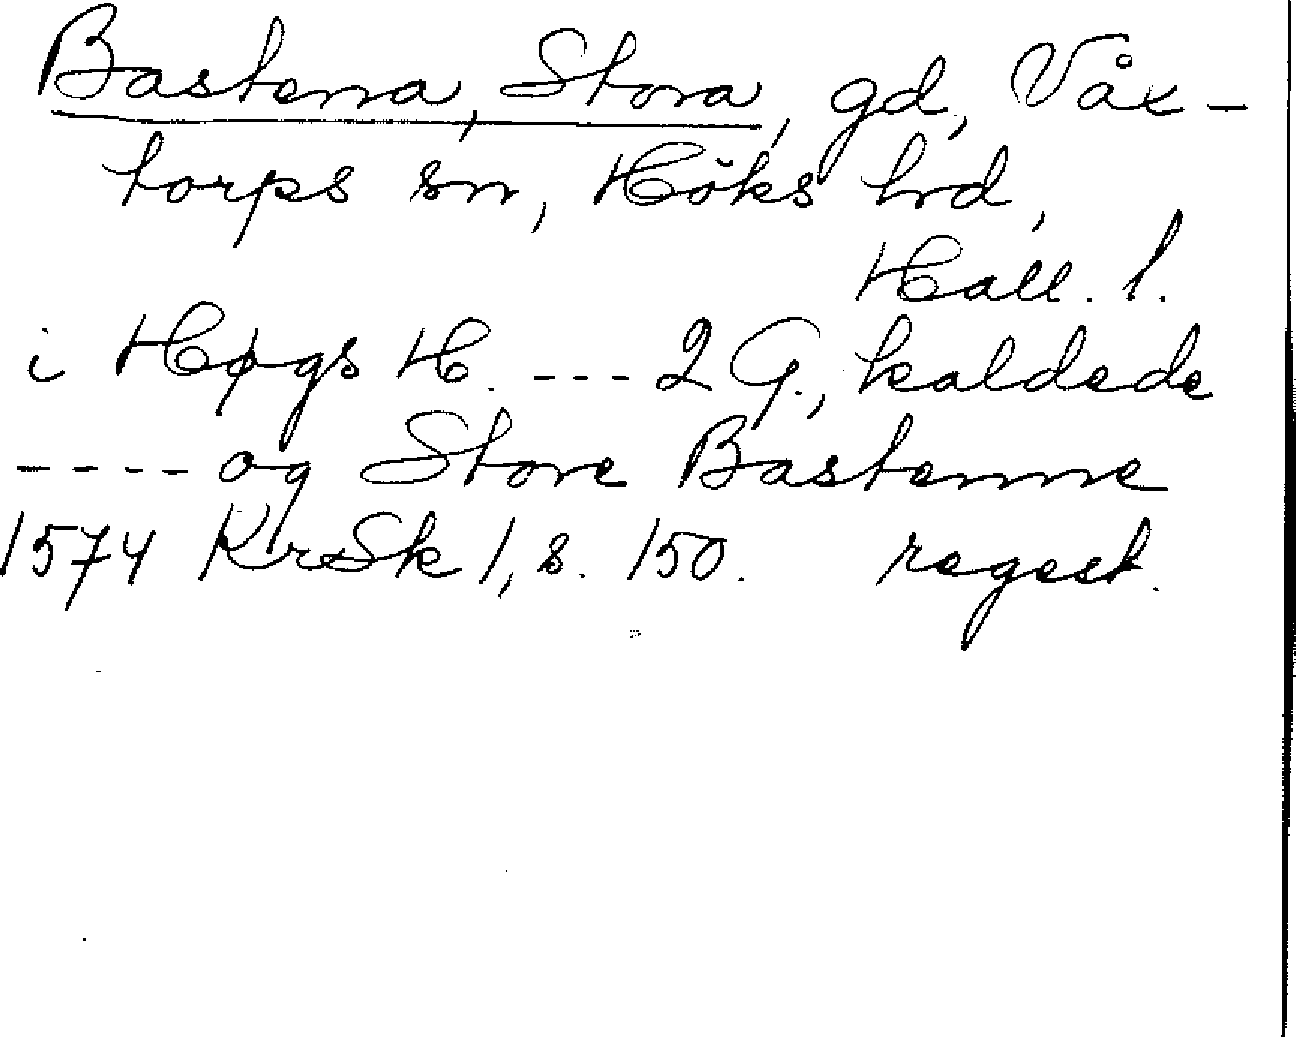 Bastenna, Stora, gd, Våx-
torps sn, Höks hd,
Hall. l.
i Høgs H. --- 2 G., kaldede
---- og Store Bastenne
1574 KrSk 1, s. 150. regest.